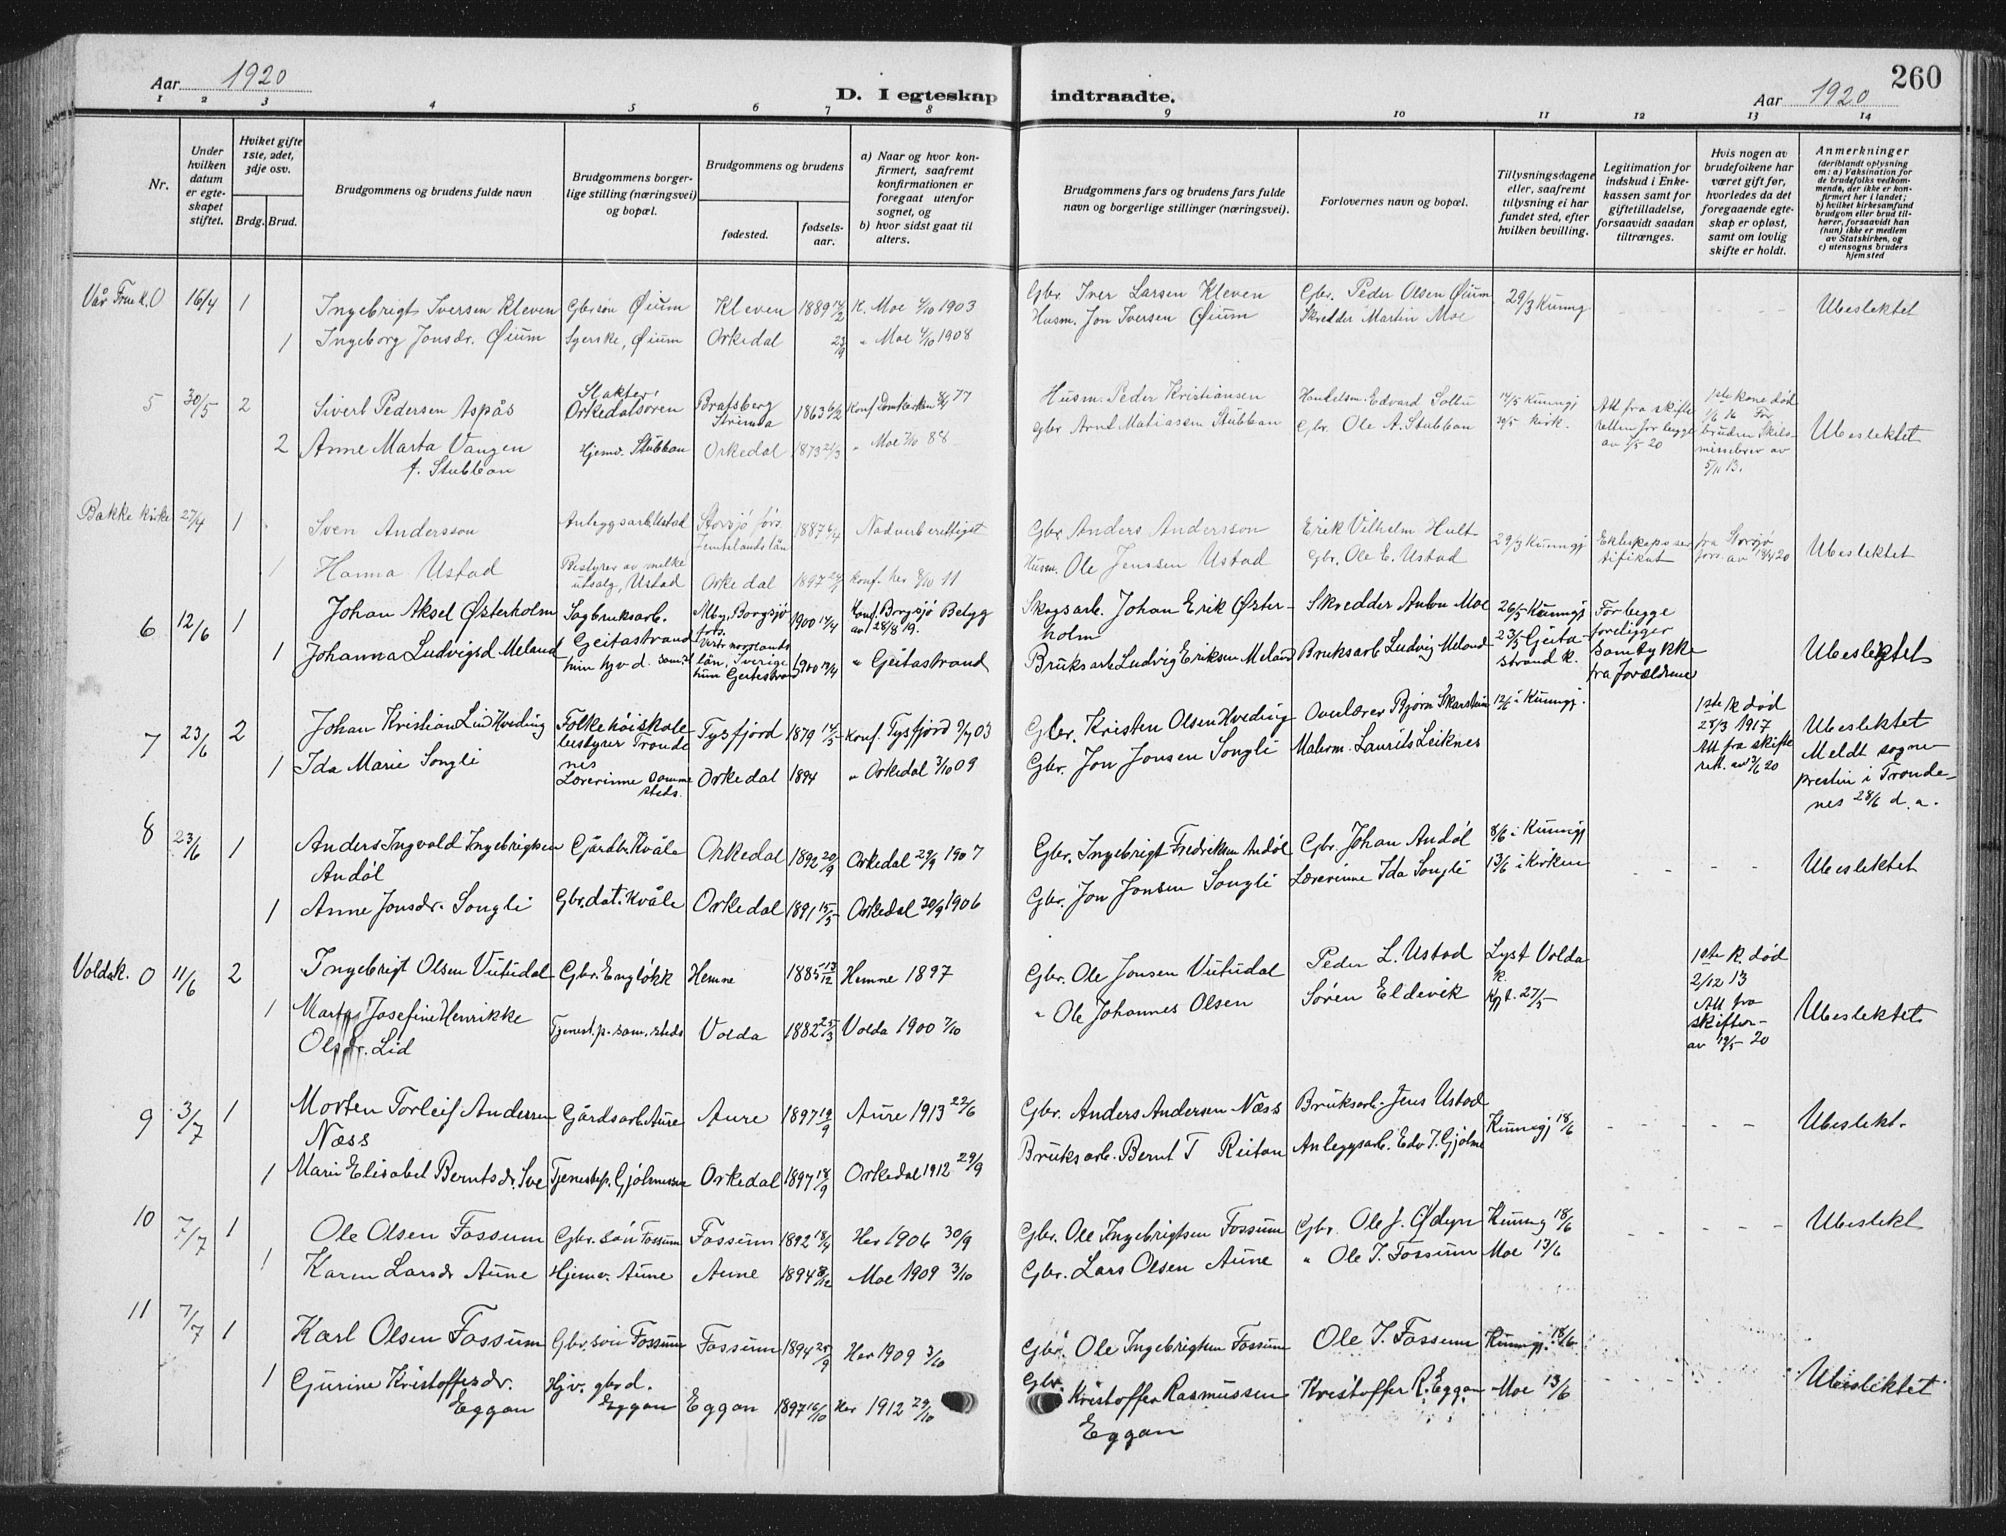 Aar 1920
D. I egteskap indtraadte.
Aar 1920
260
1 2 3 4 5 6 7 8 9 10 11 12 13 14
Nr.
Under hvilken datum er egteskapet stiftet.
Hviket gifte 1ste, 2det, 3dje osv.
Brdg. Brud.
Brudgommens og brudens fulde navn
Brudgommens borgerlige stilling (næringsvei) og bopæl.
Brudgommens og brudens
fødested.
fødselsaar.
a) Naar og hvor konfirmert, saafremt konfirmationen er foregaat utenfor sognet, og
b) hvor sidst gaat til alters.
Brudgommens fars og brudens fars fulde navn og borgerlige stillinger (næringsvei).
Forlovernes navn og bopæl.
Tillysningsdagene eller, saafremt tillysning ei har fundet sted, efter hvilken bevilling.
Legitimation for indskud i Enkekassen samt for giftetilladelse, forsaavidt saadan tiltrænges.
Hvis nogen av brudefolkene har været gift før, hvorledes da det foregaaende egteskap er opløst, samt om lovlig skifte er holdt.
Anmerkninger (deriblandt oplysning om: a) Vaksination for de brudefolks vedkommende, der ikke er konfirmert her i landet; b) hvilket kirkesamfund brudgom eller brud tilhører, forsaavidt han (hun) ikke er medlem av Statskirken, og c) utensogns bruders hjemsted
Vår Frue k. 0 16/4 1 Ingebrigt Iversen Kleven Gbr.søn Øium Kleven 1889 K. Moe 4/10 1903 Gbr. Iver Larsen Kleven Gbr. Peder Olsen Øium 29/3 Kunng Ubeslektet
1 Ingeborg Jonsdr. Øium Syerske, Øium Orkedal 23/9 " Moe 4/10 1908 Husm. Jon Iversen Øium Skredder Martin Moe
5 30/5 2 Sivert Pedersen Aspås Slakter, Orkedalsøren Bratsberg Strinda 1863 6/2 Konf. Domkirken 77 Husm. Peder Kristiansen Handelsm. Edvard Solbu Kunngj Att fra skifteretten for begge av 7/5 20 1ste kone død For bruden Skilsmissebrev av 5/11 13. Ubeslektet
2 Anne Marta Vangen f. Stubban Hjemv. Stubban Orkedal 1873 21/3 " Moe 88 Gbr Arnt Matiassen Stubban Gbr. Ole A. Stubban 30/5 kirk.
Bakke kirke 27/4 1 Sven Andersson Anlegsarb Ustad Storsjø førs. Jemtelands län 1887 Nadverberettiget Gbr Anders Andersson Erik Vilhelm Hult 29/3 Kunngj Ekteskapssertifikat fra Storsjø førs. av 18/4 20 Ubeslektet
1 Hanna Ustad Bestyrer av melkeutsalg, Ustad Orkedal 1897 konf. her 11 Husm. Ole Jenssen Ustad Gbr. Ole E. Ustad
6 12/6 1 Johan Aksel Østerholm Sagbruksarb. Geitastrand Alby, Borgsjø førs. Vesternorrlands län, Sverige 1900 14/4 Konf. Borgsjø Betyg av 28/8 19. Skogsarb. Johan Erik Østerholm Skredder Anton Moe 26/5 Kunngj Geitastrand k. For begge foreligger samtykke fra forældrene Ubeslektet
1 Johanna Ludvigsd Meland hun hjv d. samst hun Geitestrand 1900 " Geitastrand Bruksarb Ludvig Eriksen Meland Bruksarb Ludvig Meland
7 23/6 2 Johan Kristian Lind Hveding Folkehöiskolebestyrer Trondenes Tysfjord 1879 Konf. Tysfjord 03 Gbr. Kristen Olsen Hveding Overlærer Bjørn Skarstein 12/6 i Kunngj. 1ste k død 28/3 1917 Att fra skifterett. av 20 Ubeslektet Meldt sogneprestin i Trondenes 28/6 d. a.
1 Ida Marie Songli Lærerinne sammesteds. Orkedal 1894 " Orkedal 3/10 09 Gbr. Jon Jonsen Songli Malerm. Laurits Leiknes
8 23/6 1 Anders Ingvald Ingebrigtsen Andøl Gårdbr. Kvåle Orkedal 1892 20/9 Orkedal 29/9 1907 Gbr. Ingebrigt Fredriksen Andøl Gbr. Johan Andøl 8/6 i Kunngj 13/6 i Kirken Ubeslektet
1 Anne Jonsdr. Songli Gbr.dat. Kvåle Orkedal 1891 15/3 Orkedal 30/9 1906 Gbr. Jon Jonsen Songli Lærerinne Ida Songli
Volda k. 0 11/6 2 Ingebrigt Olsen Vutudal Gbr. Engløkk Hemne 1885 13/12 Hemne 1897 Gbr. Ole Jonsen Vutudal Peder L. Ustad Lyst Volda k. Kgt. 27/5 1ste k. død 2/12 13 Att fra skifter- av 19/5 20 Ubeslektet
1 Marta Josefine Henrikke Olsdr. Lid Tjenest.p. sam.steds Volda 1882 25/3 Volda 1900 7/10 " Ole Johannes Olsen Søren Eldevik
9 3/7 1 Morten Torleif Andersen Næss Gårdsarb. Aure Aure 1897 19/9 Aure 1913 22/6 Gbr. Anders Andersen Næss Bruksarb. Jens Ustad Kunngj 18/6 Ubeslekt.
1 Marie Elisabet Berntsdr. Sve Tjenestep. Gjølmesøre Orkedal 1897 18/9 Orkedal 1912 29/9 Bruksarb. Bernt T Reitan Anleggsarb. Edv I. Gjølme
10 7/7 1 Ole Olsen Fossum Gbr. søn Fossum Fossum 1892 18/4 Her 1906 30/9 Gbr. Ole Ingebrigtsen Fossum Gbr. Ole J. Ødyn Kunng 18/6 Ubeslekt
1 Karen Larsdr Aune Hjemv. Aune Aune 1894 8/12 Moe 1909 3/10 Gbr. Lars Olsen Aune " Ole I. Fossum Moe 13/6
11 7/7 1 Karl Olsen Fossum Gbr. søn Fossum Fossum 1894 25/9 Her 1909 3/10 Gbr. Ole Ingebrigtsen Fossum Ole I. Fossum Kunngj. 18/6
1 Gurine Kristoffersdr. Eggan Hjv. gbrd. Eggan Eggan 1897 16/10 Her 1912 29/10 Gbr. Kristoffer Rasmussen Eggan Kristoffer R. Eggan Moe 13/6 Ubeslektet